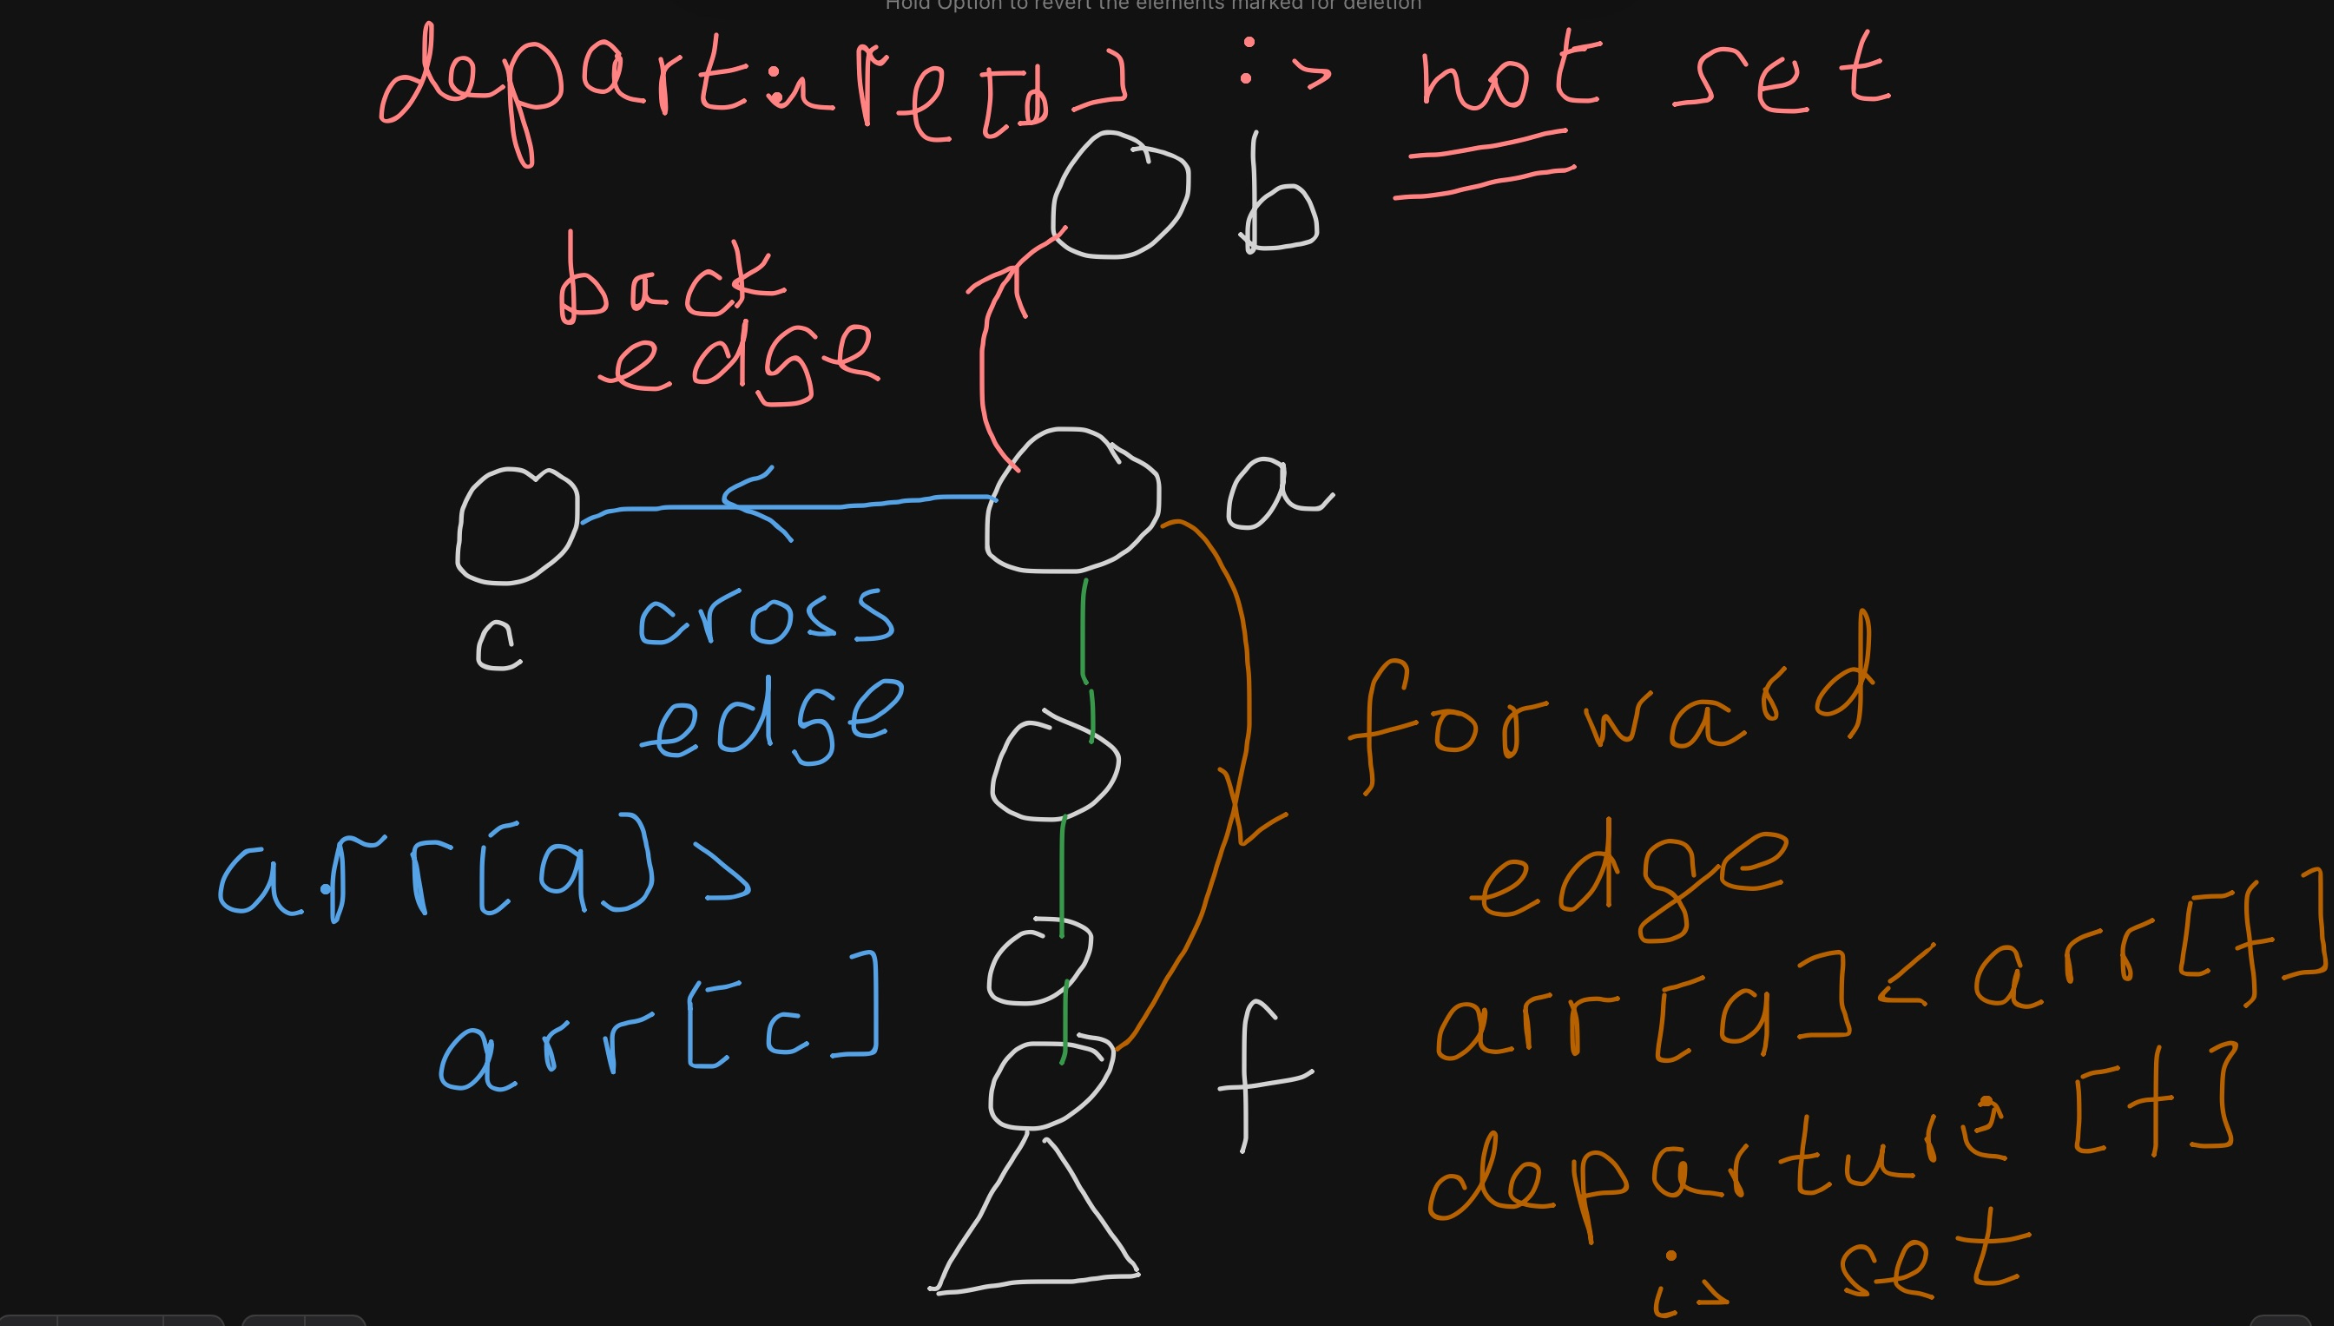 Hold Option to revert the elements marked for deletion
departure[b] is not set
b
back
edge
a
c
cross
edge
forward
edge
arr[a] >
arr[c]
arr[a] < arr[f]
f
departure [f]
is set